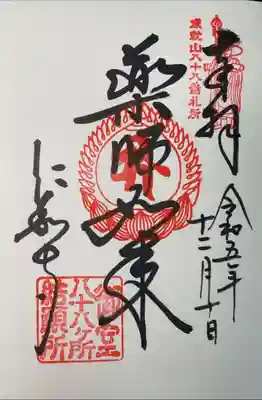 奉拝
令和五年
十二月十日
成就山八十八箇札所
薬師如来
仁和寺
御室
八十八ヶ所
結願所